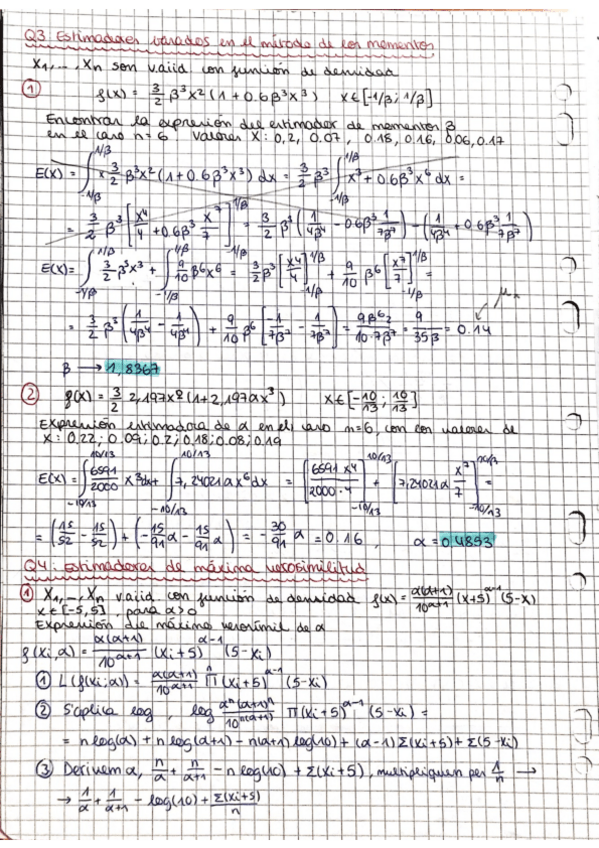 Q3 Estimadores variados en el método de los momentos
X1,..., Xn son vaiid con función de densidad
① f(x) = 3/2 β³x²(1+0.6β³x³) x∈[-1/β; 1/β]
Encontrar la expresión del estimador de momentos β
en el caso n=6 Valores X: 0,2, 0.07, 0.18, 0.16, 0.06, 0.17
E(X) = ∫_{-1/β}^{1/β} x 3/2 β³x²(1+0.6β³x³) dx = 3/2 β³ ∫_{-1/β}^{1/β} x³+0.6β³x⁶ dx =
= 3/2 β³ [x⁴/4 + 0.6β³ x⁷/7]_{-1/β}^{1/β} = 3/2 β³ (1/4β⁴ - 0.6β³ 1/7β⁷) - (1/4β⁴ + 0.6β³ 1/7β⁷)
E(X) = ∫_{-1/β}^{1/β} 3/2 β³x³ + ∫_{-1/β}^{1/β} 9/10 β⁶x⁶ = 3/2 β³ [x⁴/4]_{-1/β}^{1/β} + 9/10 β⁶ [x⁷/7]_{-1/β}^{1/β} =
= 3/2 β³ (1/4β⁴ - 1/4β⁴) + 9/10 β⁶ [-1/7β⁷ - 1/7β⁷] = 9β⁶2/10·7β⁷ = 9/35β = 0.14
β → 1,8367
② f(x) = 3/2 2,197x²(1+2,197αx³) x∈[-10/13; 10/13]
Expresión estimadora de α en el caso n=6, con los valores de
X: 0,22; 0.09; 0.2; 0,18; 0.08; 0,19
E(X) = ∫_{-10/13}^{10/13} 6591/2000 x³dx + ∫_{-10/13}^{10/13} 7,24021αx⁶dx = [6591x⁴/2000·4]_{-10/13}^{10/13} + [7,24021α x⁷/7]_{-10/13}^{10/13} =
= (15/52 - 15/52) + (-15/91 α - 15/91 α) = -30/91 α = 0.16, α = 0,4853
Q4: Estimadores de máxima verosimilitud
① X1,..., Xn vaiid con función de densidad f(x) = α(α+1)/10^{α+1} (x+5)^{α-1}(5-x)
x∈[-5,5], para α>0
Expresión del máxima verosímil de α
f(xi,α) = α(α+1)/10^{α+1} (xi+5)^{α-1} (5-xi)
① L(f(xi;α)) = α(α+1)/10^{α+1} ∏^n (xi+5)^{α-1} (5-xi)
② S'aplica log, log α^n(α+1)^n/10^{n(α+1)} ∏(xi+5)^{α-1} (5-xi) =
= n log(α) + n log(α+1) - n(α+1)log(10) + (α-1)Σ(xi+5) + Σ(5-xi)
③ Derivem α, n/α + n/α+1 - n log(10) + Σ(xi+5), multipliquem per 1/n →
→ 1/α + 1/α+1 - log(10) + Σ(xi+5)/n